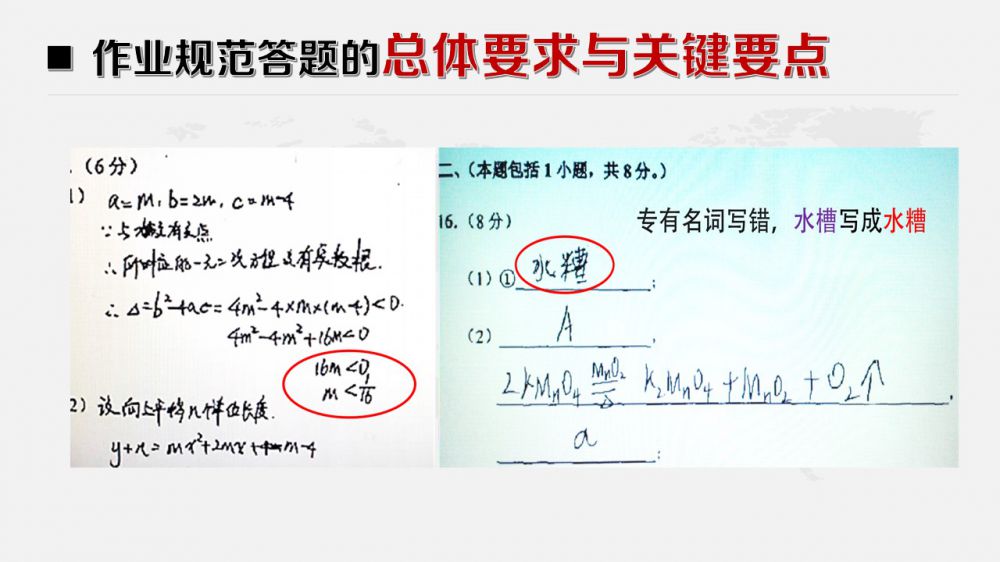 ■ 作业规范答题的总体要求与关键要点
.(6分)
1) a=m,b=2m,c=m-4
∵与x轴没有交点
∴所对应的一元二次方程没有实数根.
∴Δ=b²-4ac=4m²-4×m×(m-4)<0.
4m²-4m²+16m<0
16m<0,
m<1/16
2) 设向上平移n个单位长度.
y+n=mx²+2mx+m-4
二、(本题包括1小题,共8分。)
16.(8分)
专有名词写错,水槽写成水糟
(1)① 水糟 ;
(2) A .
2KMnO4 MnO2/Δ K2MnO4+MnO2+O2↑ .
a ;